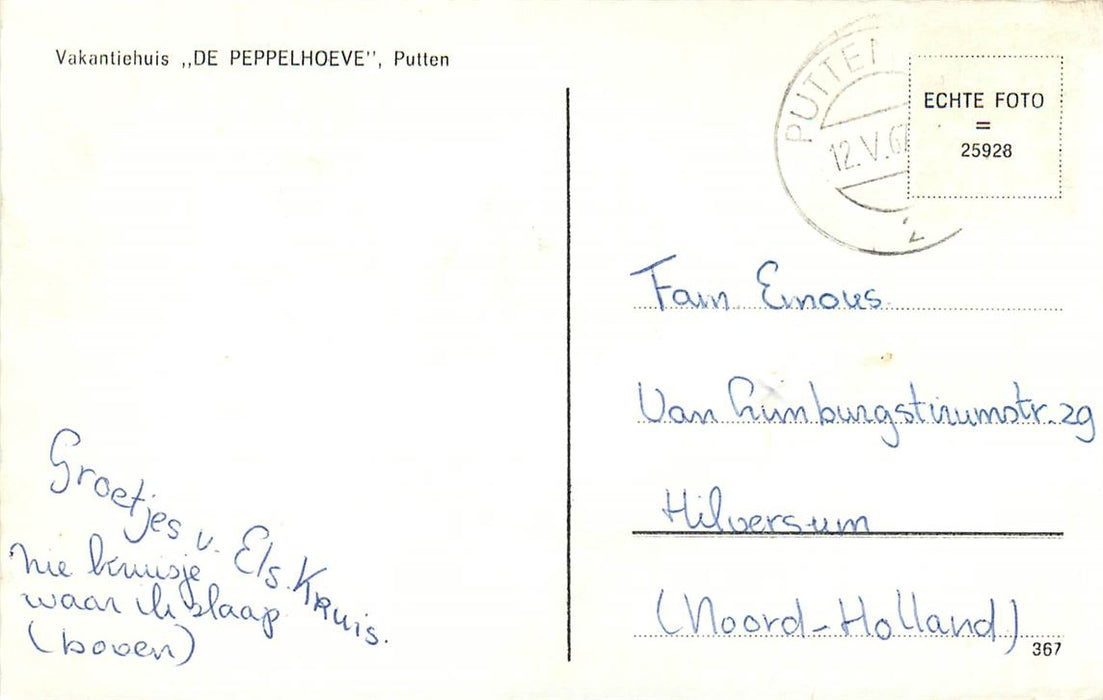 Vakantiehuis „DE PEPPELHOEVE", Putten
PUTTEN
12.V.67
2
ECHTE FOTO
=
25928
Fam Emous
Van Limburgstirumstr. 29
Hilversum
(Noord-Holland)
367
Groetjes v. Els Kruis.
hie kruisje
waar ik slaap
(boven)